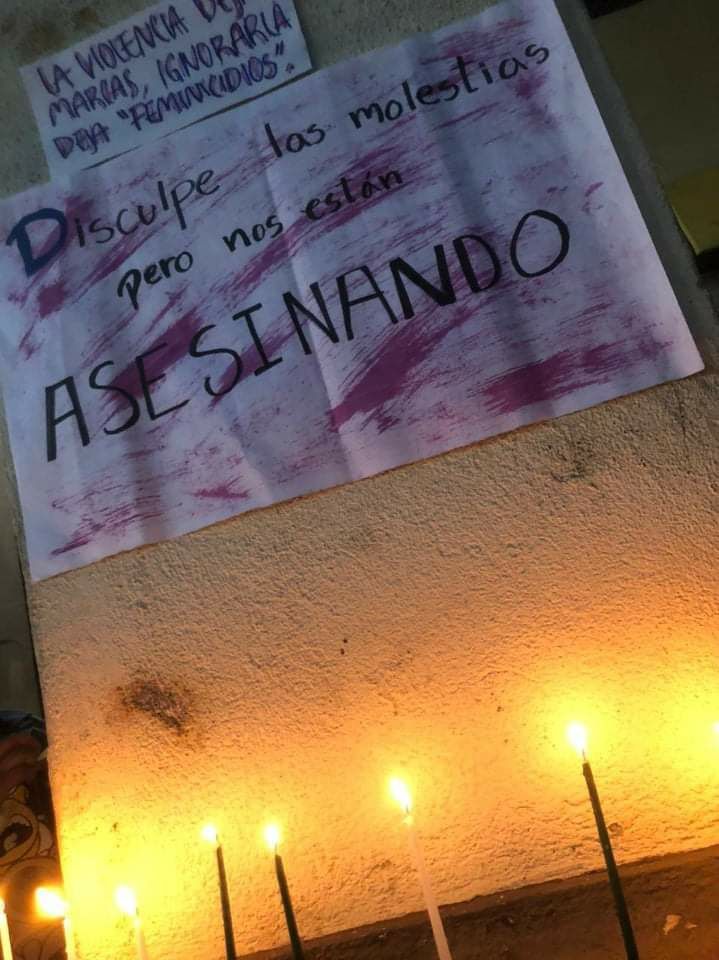 LA VIOLENCIA DEJA
MARCAS, IGNORARLA
DEJA "FEMINICIDIOS".
Disculpe las molestias
pero nos están
ASESINANDO